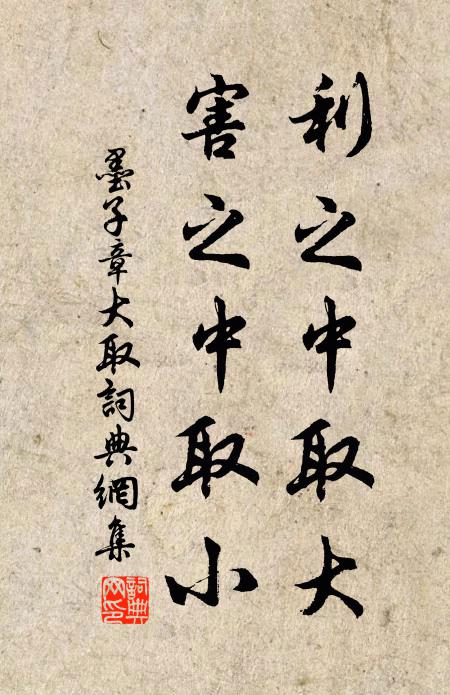 利之中取大
害之中取小
墨子章大取詞典網集
詞典网印